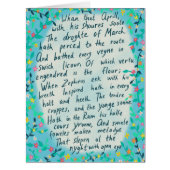 Whan that Aprill
with his shoures soote
The droghte of March
hath perced to the roote
And bathed every veyne in
swich licour, Of which vertu
engendred is the flour;
Whan Zephirus eek with his
sweeth breeth Inspired hath in every
holt and heeth The tendre
croppes, and the yonge sonne
Hath in the Ram his halfe
cours yronne, And smale
foweles maken melodye
That slepen al the
night with open eye